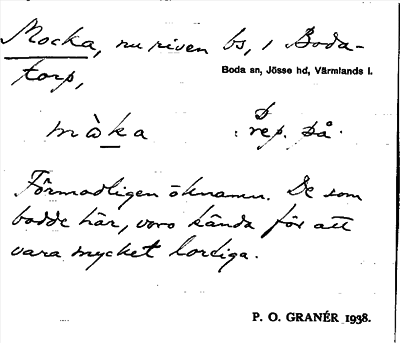 Mocka, nu riven bs, i Boda-
torp,
Boda sn, Jösse hd, Värmlands l.
màka : rep. på.
Förmodligen öknamn. De som
bodde här, voro kända för att
vara mycket lordiga.
P. O. GRANÉR 1938.